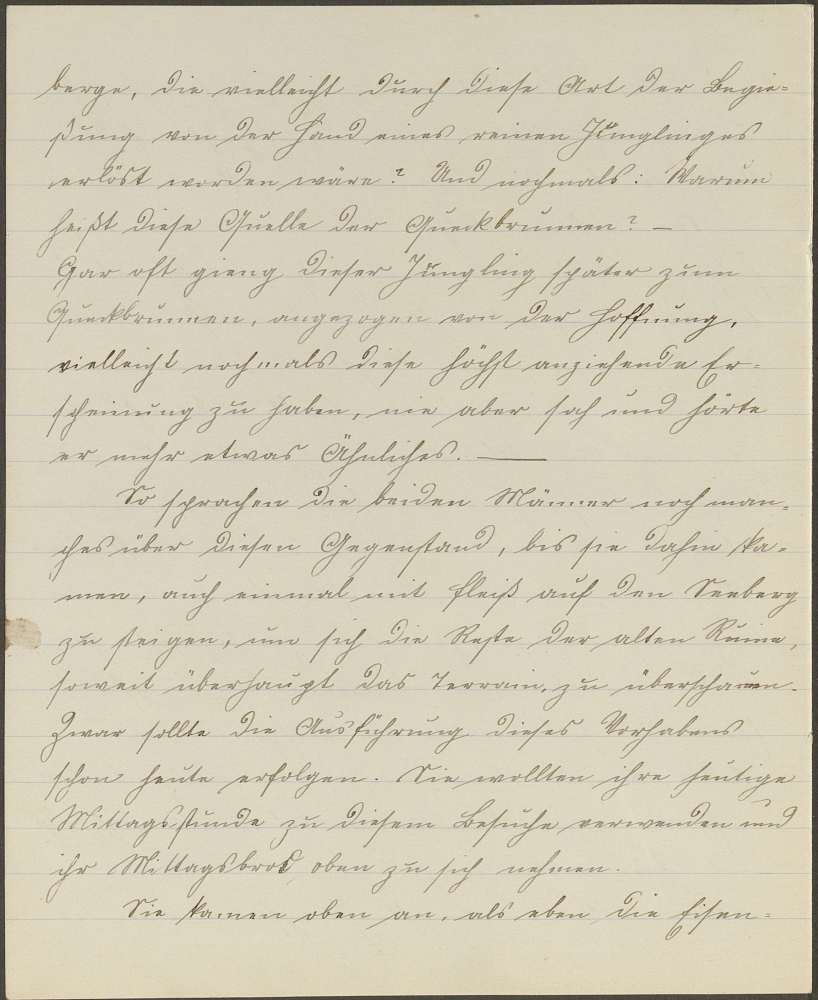 berge, die vielleicht durch diese Art der Begie-
ßung von der Hand eines reinen Jünglinges
erlöst worden wäre? Und nochmals: Warum
heißt diese Quelle der Queckbrunnen? —
Gar oft gieng dieser Jüngling später zum
Queckbrunnen, angezogen von der Hoffnung,
vielleicht nochmals diese höchst anziehende Er-
scheinung zu haben, nie aber sah und hörte
er mehr etwas Ähnliches. —
So sprachen die beiden Männer noch man-
ches über diesen Gegenstand, bis sie dahin ka-
men, auch einmal mit Fleiß auf den Seeberg
zu steigen, um sich die Reste der alten Ruine,
soweit überhaupt das Terrain, zu überschauen.
Zwar sollte die Ausführung dieses Vorhabens
schon heute erfolgen. Sie wollten ihre heutige
Mittagsstunde zu diesem Besuche verwenden und
ihr Mittagsbrod oben zu sich nehmen.
Sie kamen oben an, als eben die Eisen-